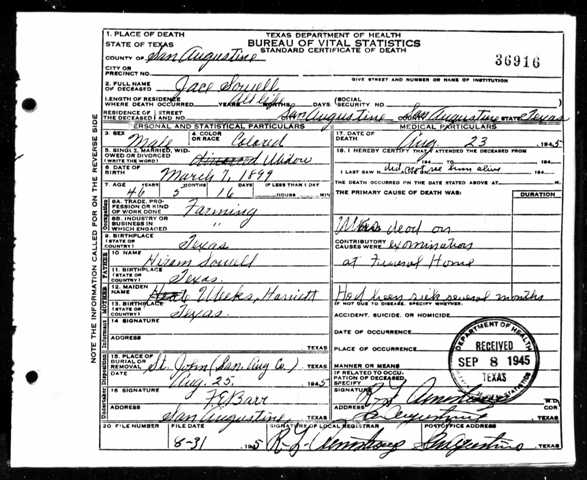 TEXAS DEPARTMENT OF HEALTH
BUREAU OF VITAL STATISTICS
STANDARD CERTIFICATE OF DEATH
36916
1. PLACE OF DEATH
STATE OF TEXAS
COUNTY OF San Augustine
CITY OR
PRECINCT NO.
GIVE STREET AND NUMBER OR NAME OF INSTITUTION
2. FULL NAME
OF DECEASED Jace Sowell
LENGTH OF RESIDENCE
WHERE DEATH OCCURRED YEARS All life MONTHS DAYS (SOCIAL
SECURITY NO.
RESIDENCE OF STREET
THE DECEASED AND NO. San Augustine San Augustine STATE Texas
PERSONAL AND STATISTICAL PARTICULARS
3. SEX Male 4. COLOR
OR RACE Colored
5. SINGLE, MARRIED, WID-
OWED OR DIVORCED
(WRITE THE WORD) Widow
6. DATE OF
BIRTH March 7, 1899
7. AGE YEARS MONTHS DAYS IF LESS THAN 1 DAY
46 5 16 HOURS MIN
8A. TRADE, PRO-
FESSION OR KIND
OF WORK DONE Farming
8B. INDUSTRY OR
BUSINESS IN
WHICH ENGAGED "
9. BIRTHPLACE
(STATE OR
COUNTRY) Texas
10 NAME Hiram Sowell
11. BIRTHPLACE
(STATE OR
COUNTRY) Texas
12. MAIDEN
NAME Weeks, Harriett
13. BIRTHPLACE
(STATE OR
COUNTRY) Texas
14 SIGNATURE
ADDRESS TEXAS
15. PLACE OF
BURIAL OR
REMOVAL St. John (San. Aug Co.)
DATE Aug 25. 1945
16 SIGNATURE F E Barr
ADDRESS San Augustine TEXAS
20 FILE NUMBER FILE DATE
8-31 1945
MEDICAL PARTICULARS
17. DATE OF
DEATH Aug. 23 1945
18. I HEREBY CERTIFY THAT I ATTENDED THE DECEASED FROM
194 TO 194
I LAST SAW H Did not see him alive 194
THE DEATH OCCURRED ON THE DATE STATED ABOVE AT M.
THE PRIMARY CAUSE OF DEATH WAS: DURATION
Was dead on
CONTRIBUTORY
CAUSES WERE examination
at Funeral Home
Had been sick several months
IF NOT DUE TO DISEASE, SPECIFY WHETHER:
ACCIDENT, SUICIDE, OR HOMICIDE
DATE OF OCCURRENCE
PLACE OF OCCURRENCE
MANNER OR MEANS
IF RELATED TO OCCU-
PATION OF DECEASED,
SPECIFY
SIGNATURE M.D.
COR
ADDRESS TEXAS
SIGNATURE OF LOCAL REGISTRAR POSTOFFICE ADDRESS
TEXAS
DEPARTMENT OF HEALTH
RECEIVED
SEP 8 1945
TEXAS
NOTE THE INFORMATION CALLED FOR ON THE REVERSE SIDE
Occupation
FATHERS
MOTHERS
Informant